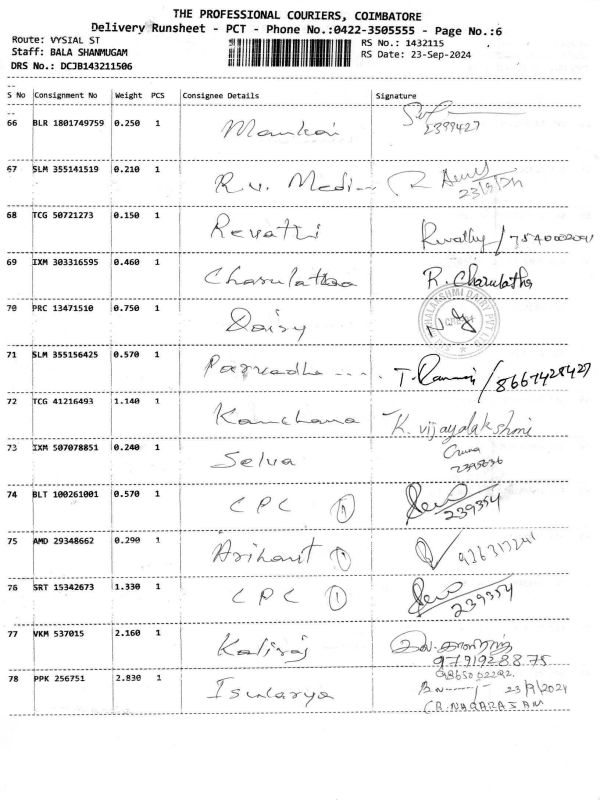 THE PROFESSIONAL COURIERS, COIMBATORE
Delivery Runsheet - PCT - Phone No.:0422-3505555 - Page No.:6
Route: VYSIAL ST RS No.: 1432115
Staff: BALA SHANMUGAM RS Date: 23-Sep-2024
DRS No.: DCJB143211506
S No Consignment No Weight PCS Consignee Details Signature
66 BLR 1801749759 0.250 1 2399427
67 SLM 355141519 0.210 1 R.V. Medi R 23/9/24
68 TCG 50721273 0.150 1 Revathi Revathy/
69 IXM 303316595 0.460 1 Charulathaa R. Charulatha
70 PRC 13471510 0.750 1 Daisy
71 SLM 355156425 0.570 1 /8667428427
72 TCG 41216493 1.140 1 Kanchana K. vijayalakshmi
73 IXM 507078851 0.240 1 Selva
74 BLT 100261001 0.570 1 CPC 1 239354
75 AMD 29348662 0.290 1 Arihant 1
76 SRT 15342673 1.330 1 CPC 1 239354
77 VKM 537015 2.160 1 Kaliraj
9791928875
78 PPK 256751 2.830 1 Iswarya 23/9/2024
CR.NAGARAJAN